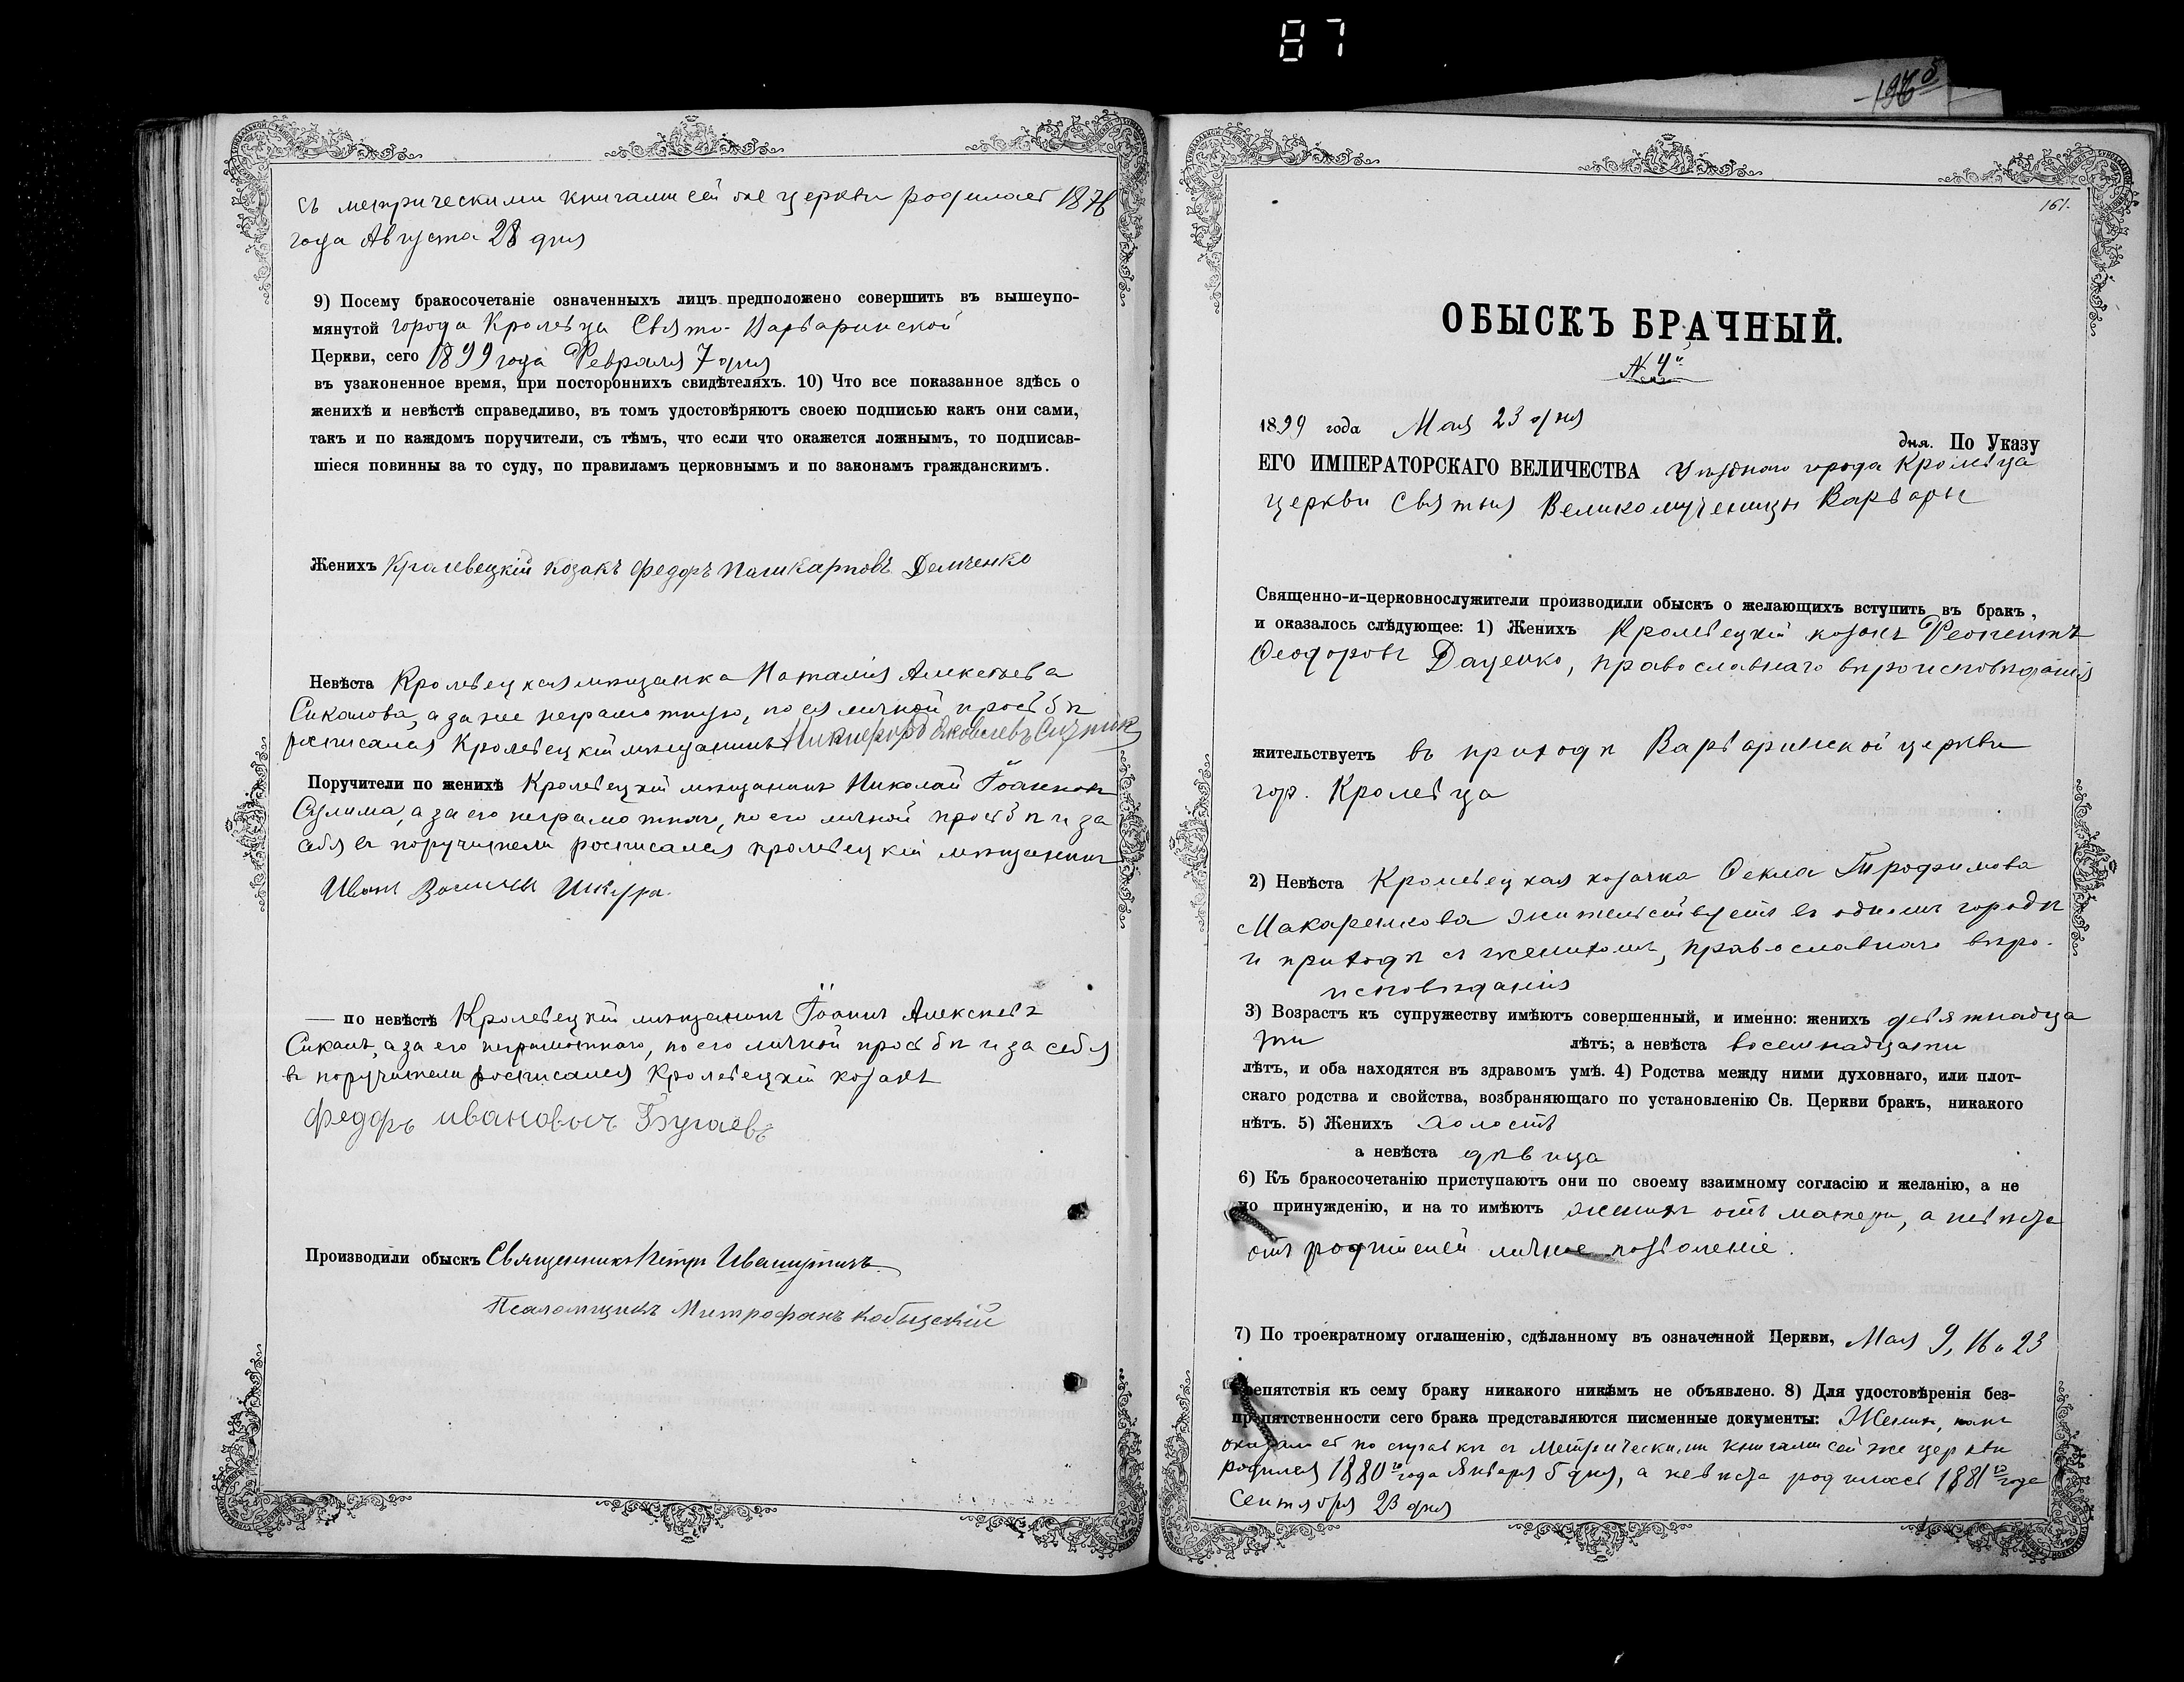 87
съ метрическими книгами сей же церкви родилась 1876
года Августа 28 дня
9) Посему бракосочетаніе означенныхъ лицъ предположено совершить въ вышеупо-
мянутой города Кролевца Свято-Варваринской
Церкви, сего 1899 года Февраля 7 дня
въ узаконенное время, при постороннихъ свидѣтеляхъ. 10) Что все показанное здѣсь о
женихѣ и невѣстѣ справедливо, въ томъ удостовѣряютъ своею подписью какъ они сами,
такъ и по каждомъ поручители, съ тѣмъ, что если что окажется ложнымъ, то подписав-
шіеся повинны за то суду, по правиламъ церковнымъ и по законамъ гражданскимъ.
Женихъ Кралевецкій козакъ Федоръ Демченко
Невѣста Кролевецкая мѣщанка Наталія Алексѣева
Сикалова, а за нее неграмотную, по ея личной просьбѣ
росписался Кролевецкій мѣщанинъ Никифоръ Яковлевъ
Поручители по женихѣ Кролевецкій мѣщанинъ Николай Іоанновъ
Сулима, а за его неграмотнаго, по его личной просьбѣ и за
себя въ поручители росписался кролевецкій мѣщанинъ
Иванъ Шкура.
— по невѣстѣ Кролевецкій мѣщанинъ Іоаннъ Алексѣевъ
Сикалъ, а за его неграмотнаго, по его личной просьбѣ и за себя
въ поручители росписался Кролевецкій козакъ
Федоръ Ивановичъ Бугаевъ
Производили обыскъ Священникъ Петръ
Псаломщикъ Митрофанъ
161.
ОБЫСКЪ БРАЧНЫЙ.
№ 4й
1899 года Мая 23 дня
дня. По Указу
ЕГО ИМПЕРАТОРСКАГО ВЕЛИЧЕСТВА Уѣзднаго города Кролевца
церкви Святыя Великомученицы Варвары
Священно-и-церковнослужители производили обыскъ о желающихъ вступить въ бракъ,
и оказалось слѣдующее: 1) Женихъ Кролевецкій козакъ Феопентъ
Феодоровъ Даценко, православнаго вѣроисповѣданія
жительствуетъ въ приходѣ Варваринской церкви
гор. Кролевца
2) Невѣста Кролевецкая козачка Фекла Трофимова
Макаренкова жительствуетъ въ одномъ городѣ
и приходѣ съ женихомъ, православнаго вѣро-
исповѣданія
3) Возрастъ къ супружеству имѣютъ совершенный, и именно: женихъ девятнадца
ти лѣтъ; а невѣста восемнадцати
лѣтъ, и оба находятся въ здравомъ умѣ. 4) Родства между ними духовнаго, или плот-
скаго родства и свойства, возбраняющаго по установленію Св. Церкви бракъ, никакого
нѣтъ. 5) Женихъ холостъ
а невѣста дѣвица
6) Къ бракосочетанію приступаютъ они по своему взаимному согласію и желанію, а не
по принужденію, и на то имѣютъ женихъ отъ матери, а невѣста
отъ родителей личное позволеніе.
7) По троекратному оглашенію, сдѣланному въ означенной Церкви, Мая 9, 16 и 23
препятствія къ сему браку никакого никѣмъ не объявлено. 8) Для удостовѣренія без-
препятственности сего брака представляются писменные документы: Женихъ, какъ
оказалось по справкѣ съ метрическими книгами сей же церкви
родился 1880го года Января 5 дня, а невѣста родилась 1881го года
Сентября 23 дня